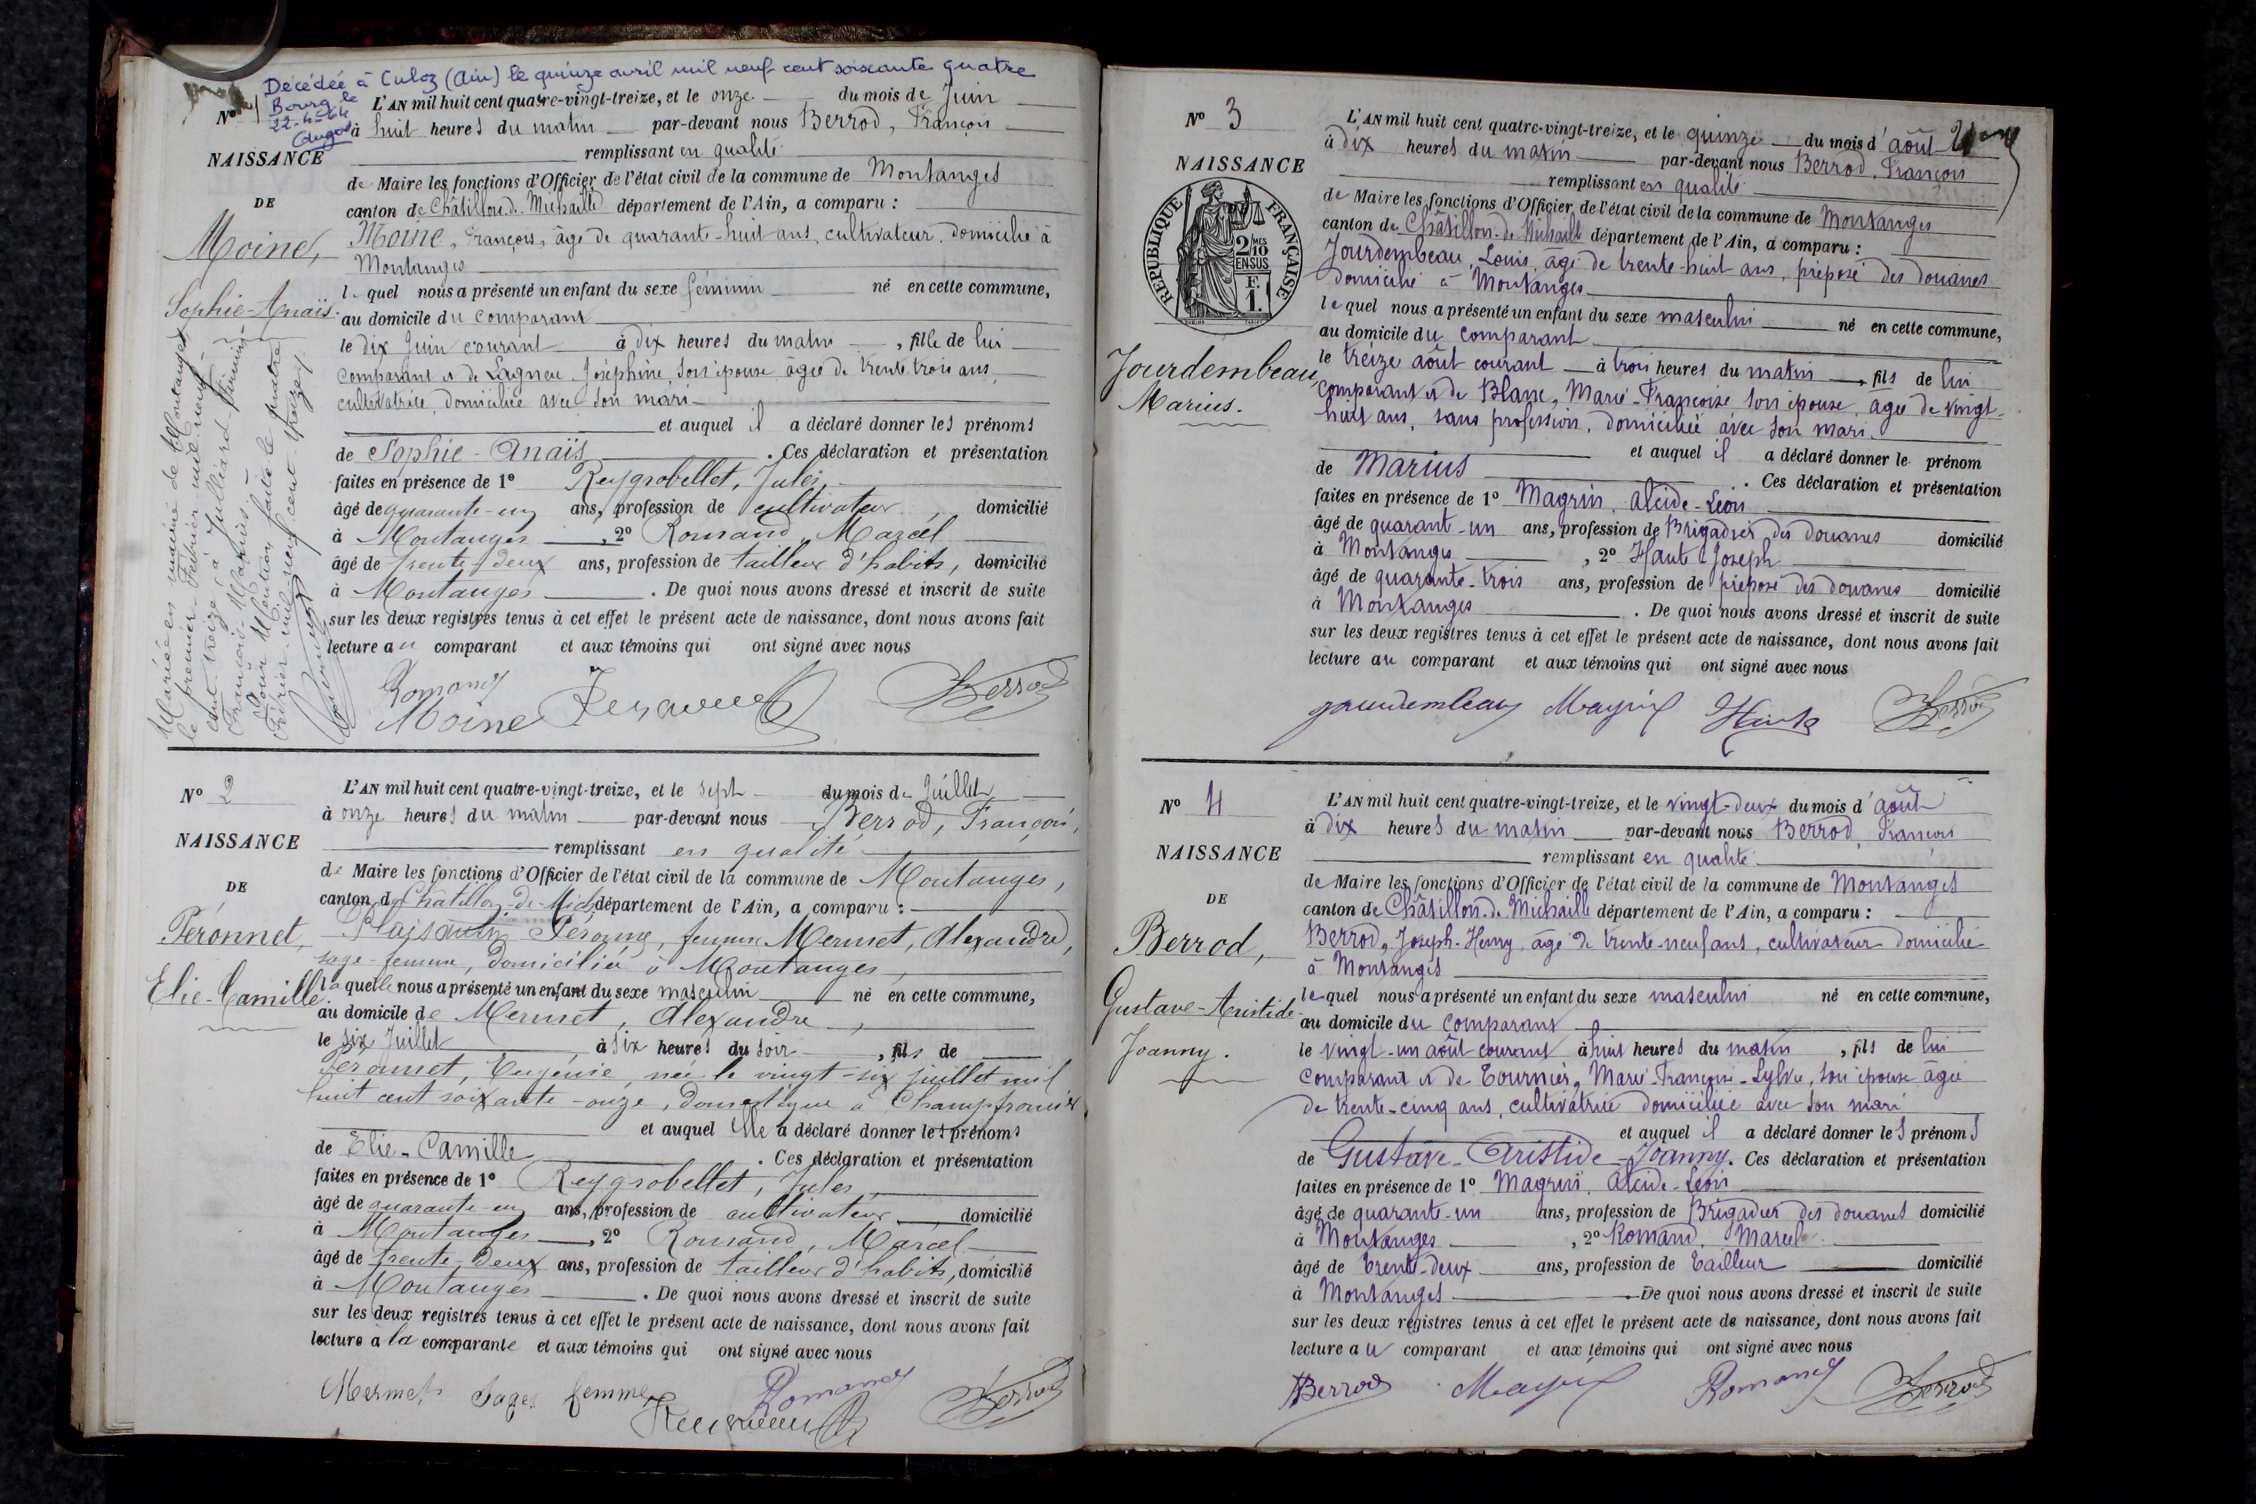 Décédée à Culoz (Ain) le quinze avril mil neuf cent soixante quatre
Bourg le
22-4-64
Nº 1
NAISSANCE
DE
Moine,
Sophie-Anaïs.
Mariée en mairie de Montanges
le premier Février mil neuf
cent treize, à Juilliard Firmin
François-Marius
Pour Mention faite le quatre
Février mil neuf cent treize
L'AN mil huit cent quatre-vingt-treize, et le onze du mois de Juin
à huit heures du matin par-devant nous Berrod, François
remplissant en qualité
de Maire les fonctions d'Officier de l'état civil de la commune de Montanges
canton de Châtillon-de-Michaille département de l'Ain, a comparu :
Moine, François, âgé de quarante-huit ans, cultivateur, domicilié à
Montanges
lequel nous a présenté un enfant du sexe féminin né en cette commune,
au domicile du comparant
le dix Juin courant à dix heures du matin, fille de lui
comparant et de Lagneu Joséphine, son épouse âgée de trente trois ans,
cultivatrice, domiciliée avec son mari
et auquel il a déclaré donner les prénoms
de Sophie-Anaïs. Ces déclaration et présentation
faites en présence de 1º Reygrobellet, Jules,
âgé de quarante-un ans, profession de cultivateur, domicilié
à Montanges, 2º Romand, Marcel
âgé de trente-deux ans, profession de tailleur d'habits, domicilié
à Montanges. De quoi nous avons dressé et inscrit de suite
sur les deux registres tenus à cet effet le présent acte de naissance, dont nous avons fait
lecture au comparant et aux témoins qui ont signé avec nous
Romand
Moine
Berrod
Nº 2
NAISSANCE
DE
Péronnet,
Elie-Camille.
L'AN mil huit cent quatre-vingt-treize, et le sept du mois de Juillet
à onze heures du matin par-devant nous Berrod, François,
remplissant en qualité
de Maire les fonctions d'Officier de l'état civil de la commune de Montanges,
canton de Châtillon-de-Mich. département de l'Ain, a comparu :
femme Mermet, Alexandre,
sage-femme, domiciliée à Montanges,
laquelle nous a présenté un enfant du sexe masculin né en cette commune,
au domicile de Mermet, Alexandre,
le six Juillet à six heures du soir, fils de
Péronnet, Eugénie, née le vingt-six juillet mil
huit cent soixante-onze, domestique à Champfromier
et auquel elle a déclaré donner les prénoms
de Elie-Camille. Ces déclaration et présentation
faites en présence de 1º Reygrobellet, Jules,
âgé de quarante-un ans, profession de cultivateur domicilié
à Montanges, 2º Romand, Marcel
âgé de trente-deux ans, profession de tailleur d'habits, domicilié
à Montanges. De quoi nous avons dressé et inscrit de suite
sur les deux registres tenus à cet effet le présent acte de naissance, dont nous avons fait
lecture à la comparante et aux témoins qui ont signé avec nous
Mermet Sages femme Romand Berrod
Nº 3
NAISSANCE
RÉPUBLIQUE FRANÇAISE
2 MES
10
EN SUS
F.
1.
Jourdembeau,
Marius.
L'AN mil huit cent quatre-vingt-treize, et le quinze du mois d'août
à dix heures du matin par-devant nous Berrod, François
remplissant en qualité
de Maire les fonctions d'Officier de l'état civil de la commune de Montanges
canton de Châtillon-de-Michaille département de l'Ain, a comparu :
Jourdembeau, Louis, âgé de trente-huit ans, préposé des douanes
domicilié à Montanges
lequel nous a présenté un enfant du sexe masculin né en cette commune,
au domicile du comparant
le treize août courant à trois heures du matin, fils de lui
comparant et de Blanc, Marie-Françoise son épouse, âgée de vingt-
huit ans, sans profession, domiciliée avec son mari.
et auquel il a déclaré donner le prénom
de Marius. Ces déclaration et présentation
faites en présence de 1º Magrin, Alcide-Léon
âgé de quarant-un ans, profession de Brigadier des douanes domicilié
à Montanges, 2º Haute Joseph
âgé de quarante-trois ans, profession de préposé des douanes domicilié
à Montanges. De quoi nous avons dressé et inscrit de suite
sur les deux registres tenus à cet effet le présent acte de naissance, dont nous avons fait
lecture au comparant et aux témoins qui ont signé avec nous
Jourdembeau Magrin Haute Berrod
Nº 4
NAISSANCE
DE
Berrod,
Gustave-Aristide-
Joanny.
L'AN mil huit cent quatre-vingt-treize, et le vingt-deux du mois d'août
à dix heures du matin par-devant nous Berrod, François
remplissant en qualité
de Maire les fonctions d'Officier de l'état civil de la commune de Montanges
canton de Châtillon-de-Michaille département de l'Ain, a comparu :
Berrod, Joseph-Henry, âgé de trente-neuf ans, cultivateur domicilié
à Montanges
lequel nous a présenté un enfant du sexe masculin né en cette commune,
au domicile du comparant
le vingt-un août courant à huit heures du matin, fils de lui
comparant et de Tournier, Marie-Françoise-Sylvie, son épouse âgée
de trente-cinq ans, cultivatrice domiciliée avec son mari
et auquel il a déclaré donner les prénoms
de Gustave-Aristide-Joanny. Ces déclaration et présentation
faites en présence de 1º Magrin, Alcide-Léon
âgé de quarante-un ans, profession de Brigadier des douanes domicilié
à Montanges, 2º Romand, Marcel
âgé de trente-deux ans, profession de Tailleur domicilié
à Montanges. De quoi nous avons dressé et inscrit de suite
sur les deux registres tenus à cet effet le présent acte de naissance, dont nous avons fait
lecture au comparant et aux témoins qui ont signé avec nous
HBerrod Magrin Romand Berrod